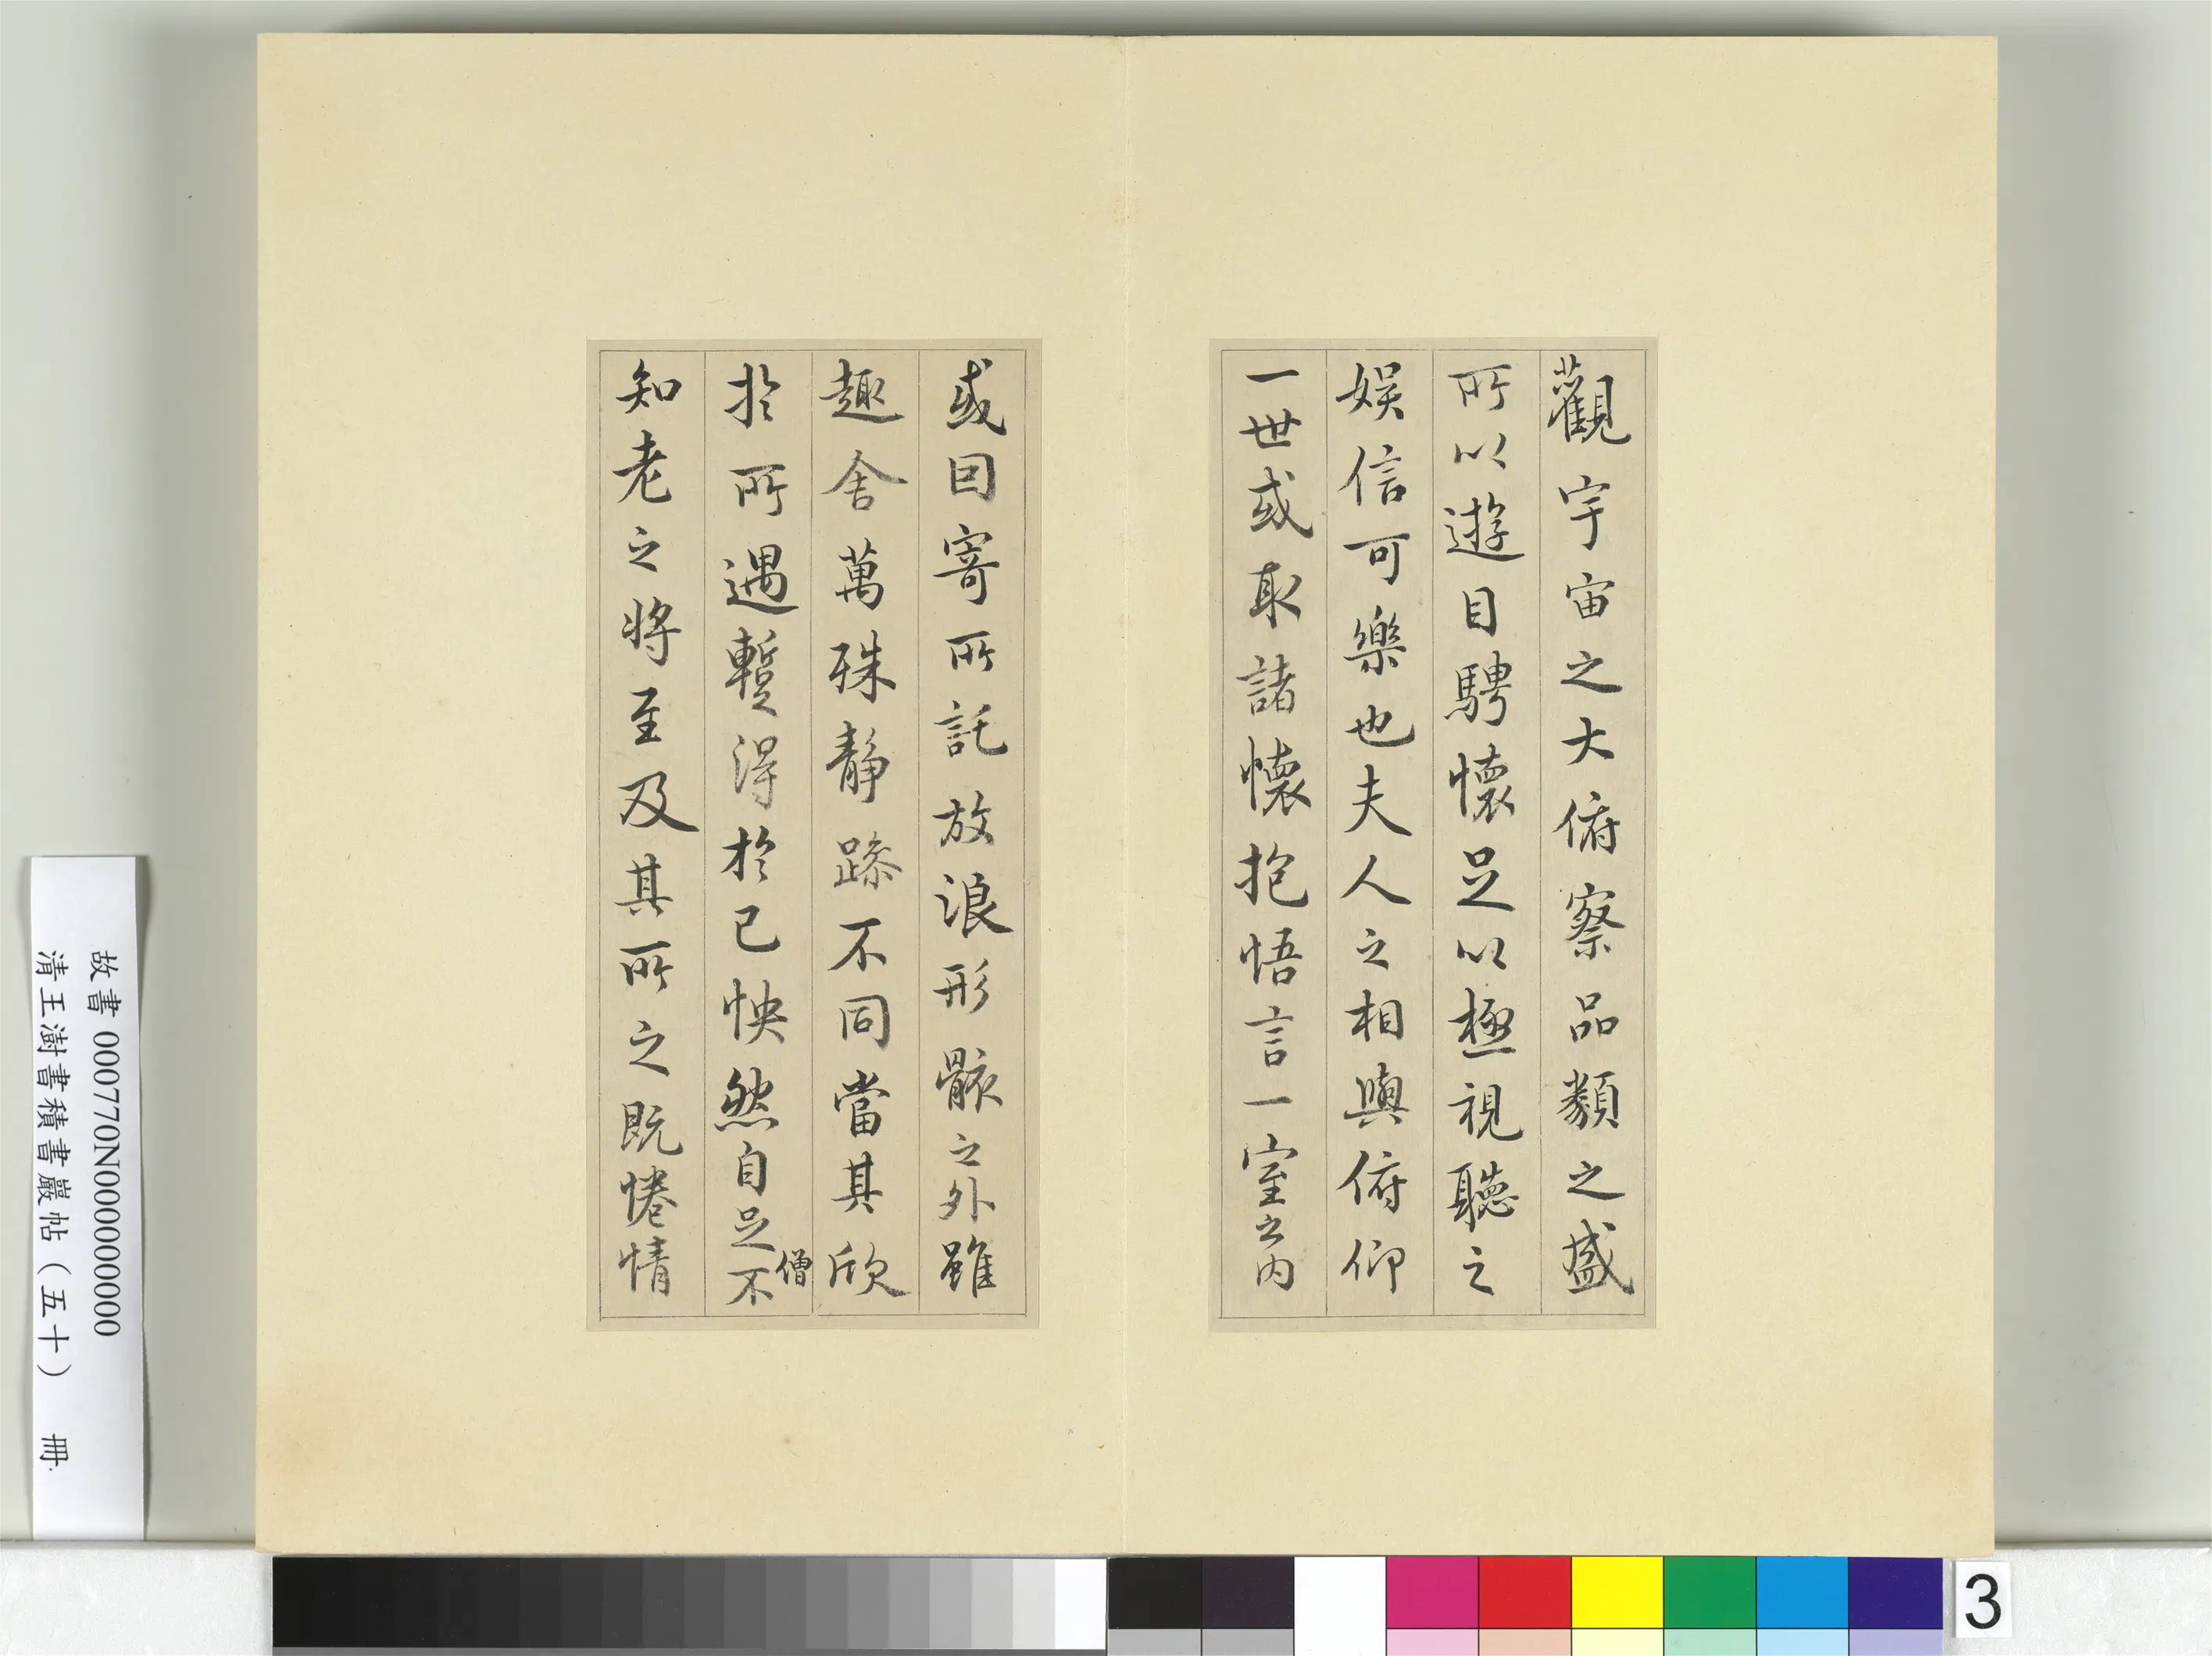 觀宇宙之大俯察品類之盛
所以遊目騁懷足以極視聽之
娱信可樂也夫人之相與俯仰
一世或取諸懷抱悟言一室之內
或因寄所託放浪形骸之外雖
趣舍萬殊靜躁不同當其欣
於所遇蹔得於己怏然自足不
僧
知老之將至及其所之既惓情
故書 000770N000000000
清王澍書積書巖帖（五十） 冊
3